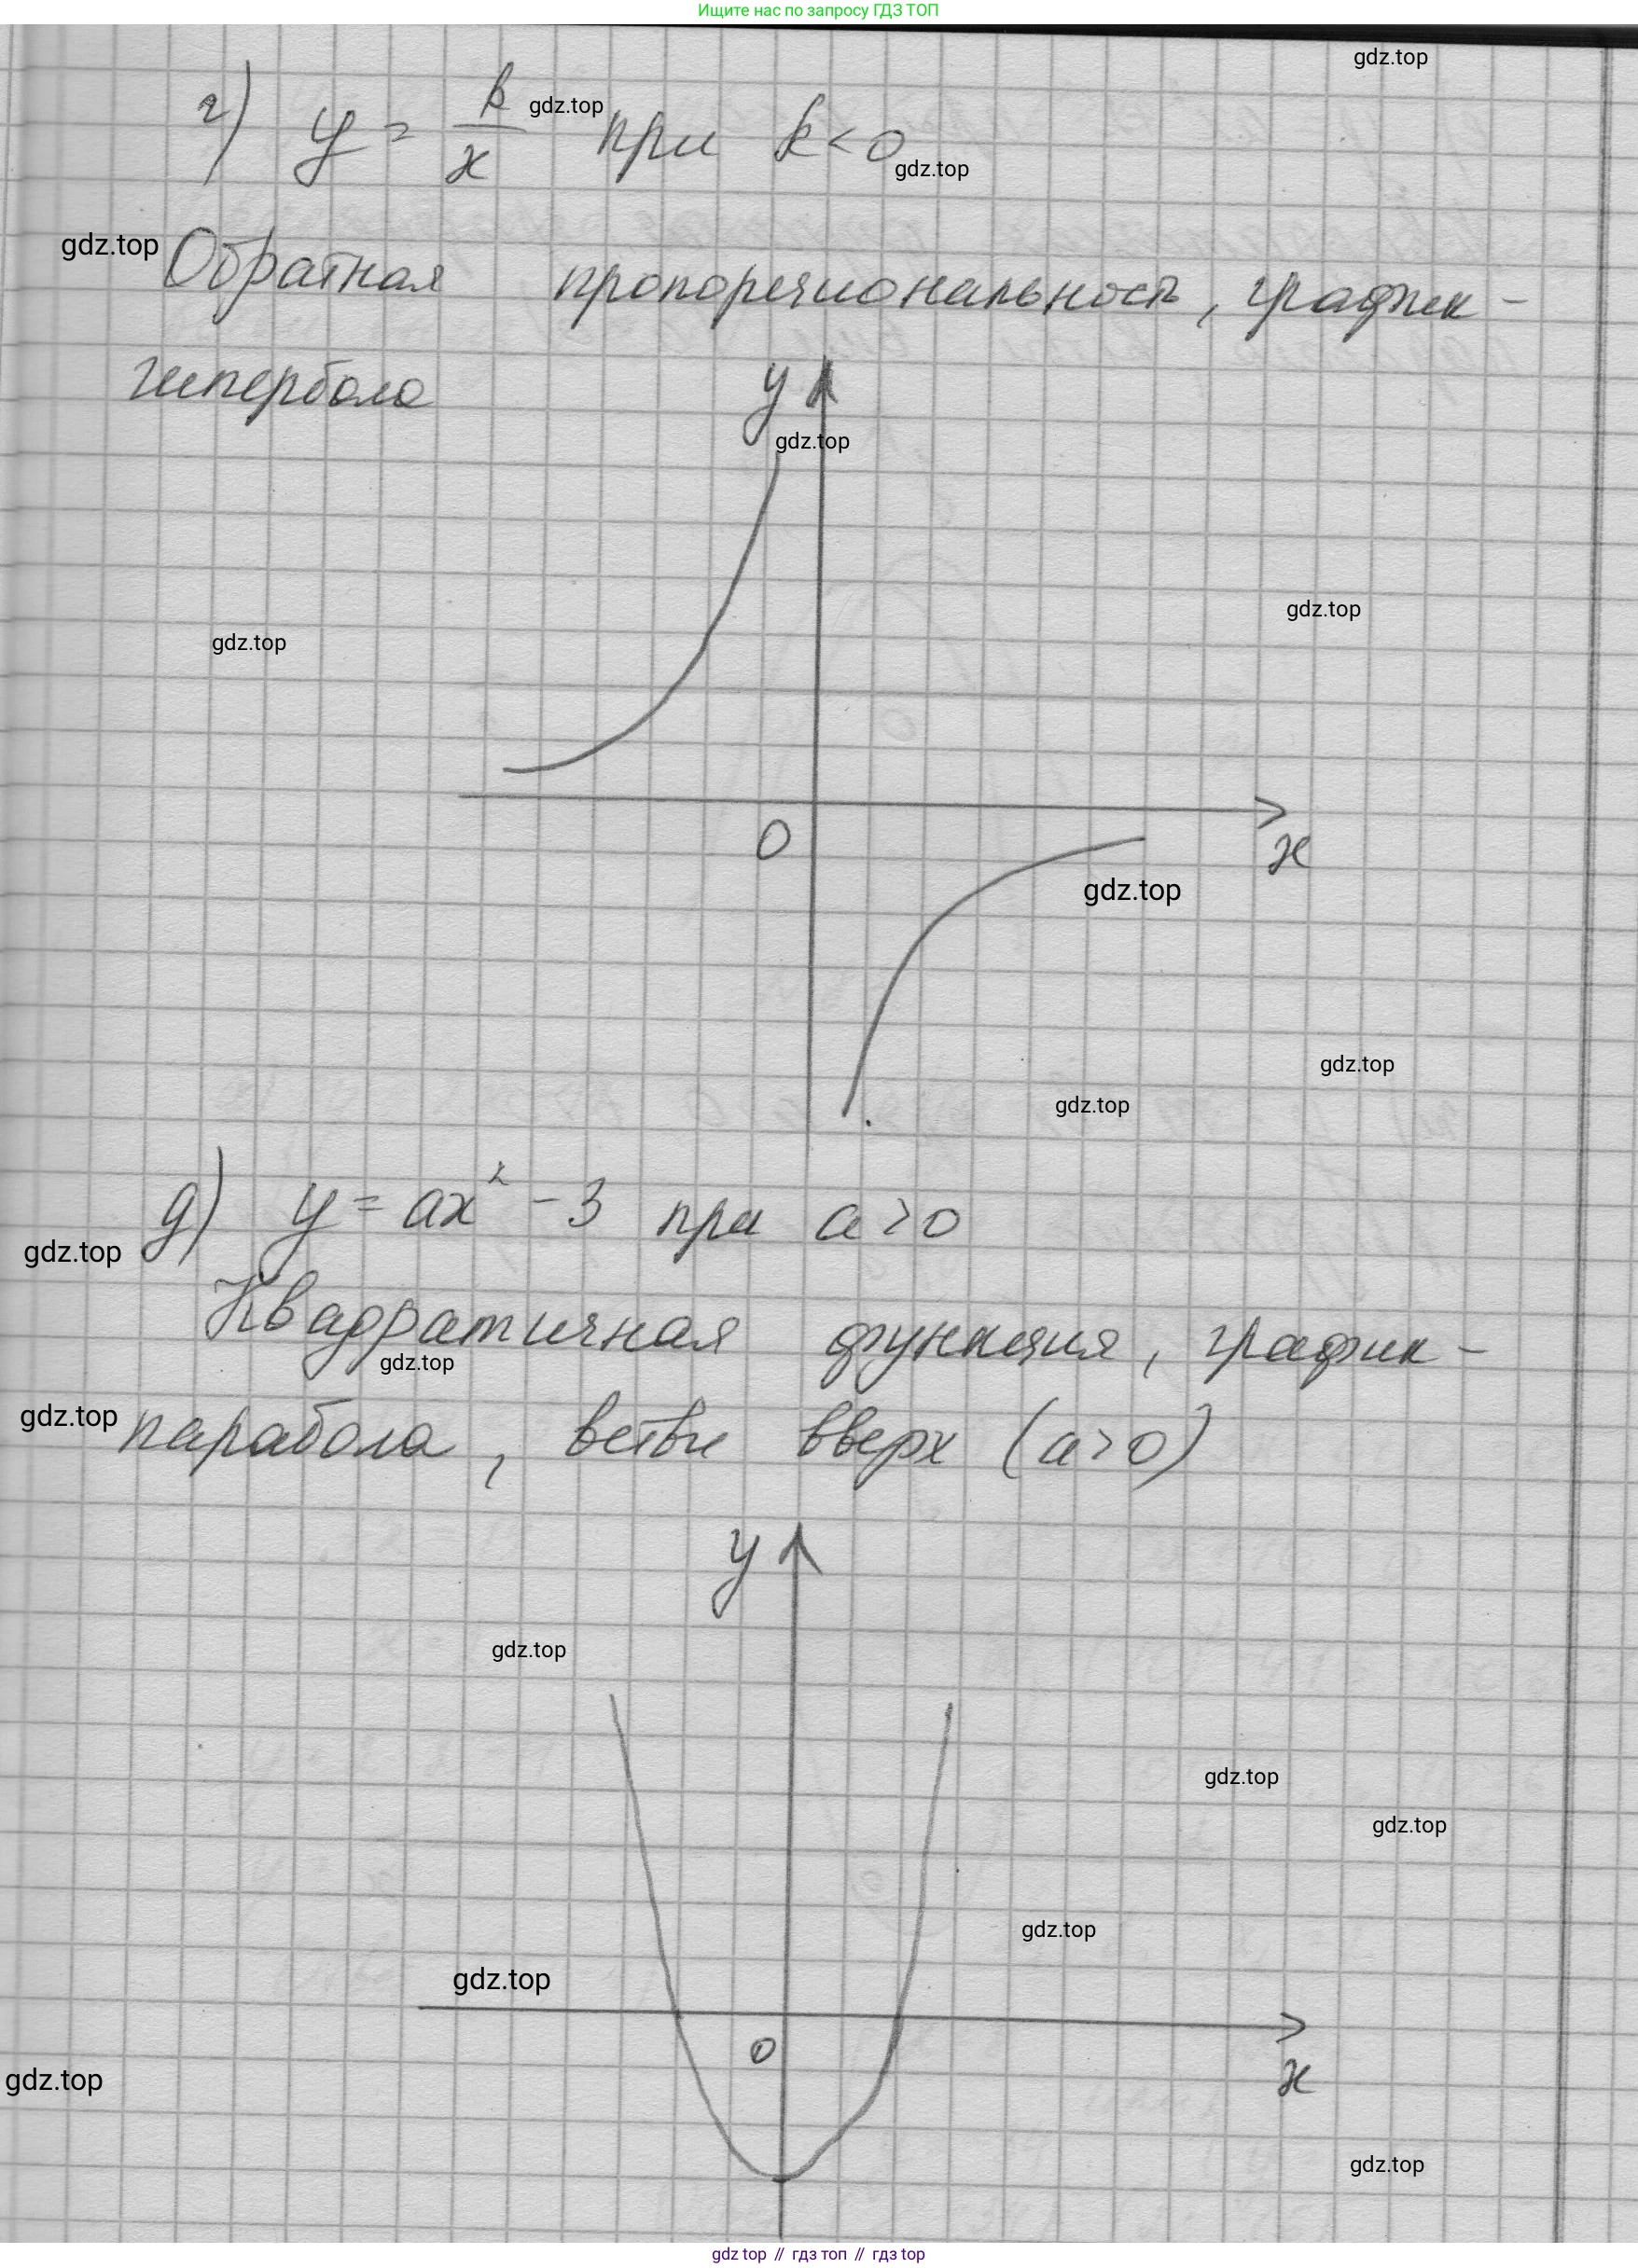 Ищите нас по запросу ГДЗ ТОП
gdz.top
г) y = k/x при k < 0
gdz.top
gdz.top
gdz.top
Обратная пропорциональность, график -
гипербола
y
gdz.top
gdz.top
gdz.top
0
x
gdz.top
gdz.top
gdz.top
д) y = ax² - 3 при a > 0
gdz.top
Квадратичная функция, график -
gdz.top
gdz.top
парабола, ветви вверх (a > 0)
y
gdz.top
gdz.top
gdz.top
gdz.top
gdz.top
0
x
gdz.top
gdz.top
gdz top // гдз топ // гдз top